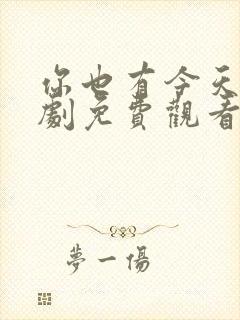 你也有今天
劇免費觀看
夢一傷